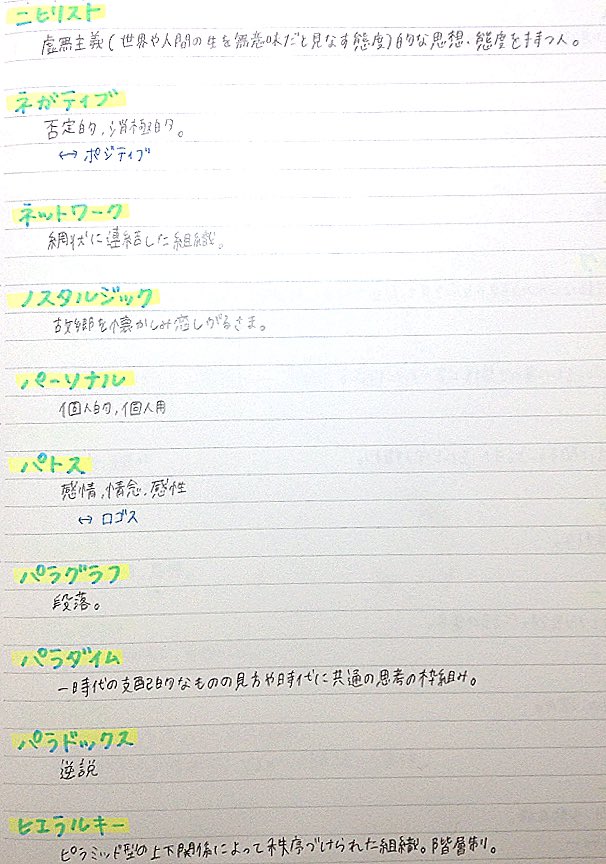 ニヒリスト
虚無主義(世界や人間の生を無意味だと見なす態度)的な思想・態度を持つ人。
ネガティブ
否定的,消極的。
↔ ポジティブ
ネットワーク
網状に連結した組織。
ノスタルジック
故郷を懐かしみ恋しがるさま。
パーソナル
個人的,個人用
パトス
感情,情念,感性
↔ ロゴス
パラグラフ
段落。
パラダイム
一時代の支配的なものの見方や時代に共通の思考の枠組み。
パラドックス
逆説
ヒエラルキー
ピラミッド型の上下関係によって秩序づけられた組織。階層制。